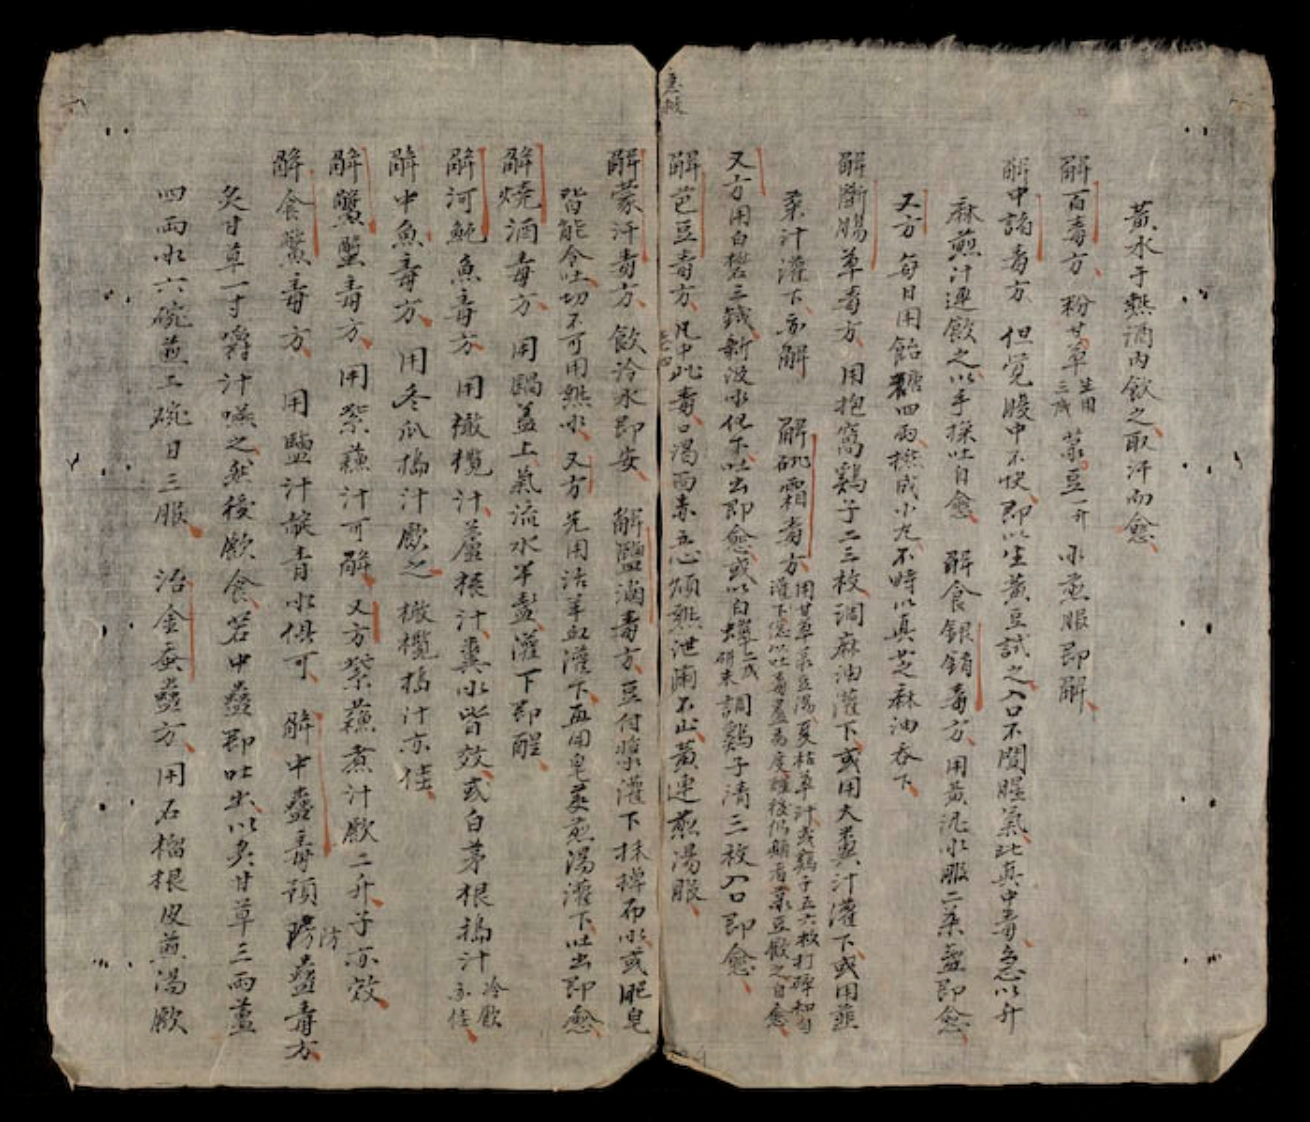 黃水于熱酒內飲之取汗而愈
解百毒方 粉甘草生用三戔 菉豆一升 水煮服即解
解中諸毒方 但覺腹中不快即以生黃豆試之入口不聞腥氣此真中毒急以升
麻煎汁連飲之以手探吐自愈 解食銀銷毒方 用黃泥水服二茶盞即愈
又方 每日用飴糖四兩撚成小丸不時以真芝麻油吞下
解斷腸草毒方 用抱窩鷄子二三枚調麻油灌下或用大糞汁灌下或用韭
菜汁灌下亦解 解砒霜毒方 用甘草菉豆湯夏枯草汁或鷄子五六枚打碎和勻灌下總以吐毒盡為度
又方用白礬三錢新汲水化下吐出即愈或以白礬二戔研末調鷄子清三枚入口即愈
解芭豆毒方 凡中此毒口渴面赤五心煩熱泄痢不止黃連煎湯服
解蒙汗毒方 飲冷水即安 解鹽滷毒方 豆付漿灌下抹擇布水或肥皂
皆能令吐切不可用熱水 又方 先用活羊血灌下再用皂莢煎湯灌下吐出即愈
解燒酒毒方 用鍋盖上氣流水半盞灌下即醒
解河魨魚毒方 用橄欖汁蘆根汁糞水皆效或白茅根搗汁冷飲亦佳
解中魚毒方 用冬瓜搗汁飲之 橄欖搗汁亦佳
解蟹毒方 用紫蘇汁可解 又方紫蘇煮汁飲二升子亦效
解食鱉毒方 用鹽汁靛青水俱可 解中蠱毒預防蠱毒方
炙甘草一寸嚼汁嚥之然後飲食若中蠱即吐出以炙甘草三兩薑
四兩水六碗煎二碗日三服 治金蚕蠱方 用石榴根皮煎湯飲